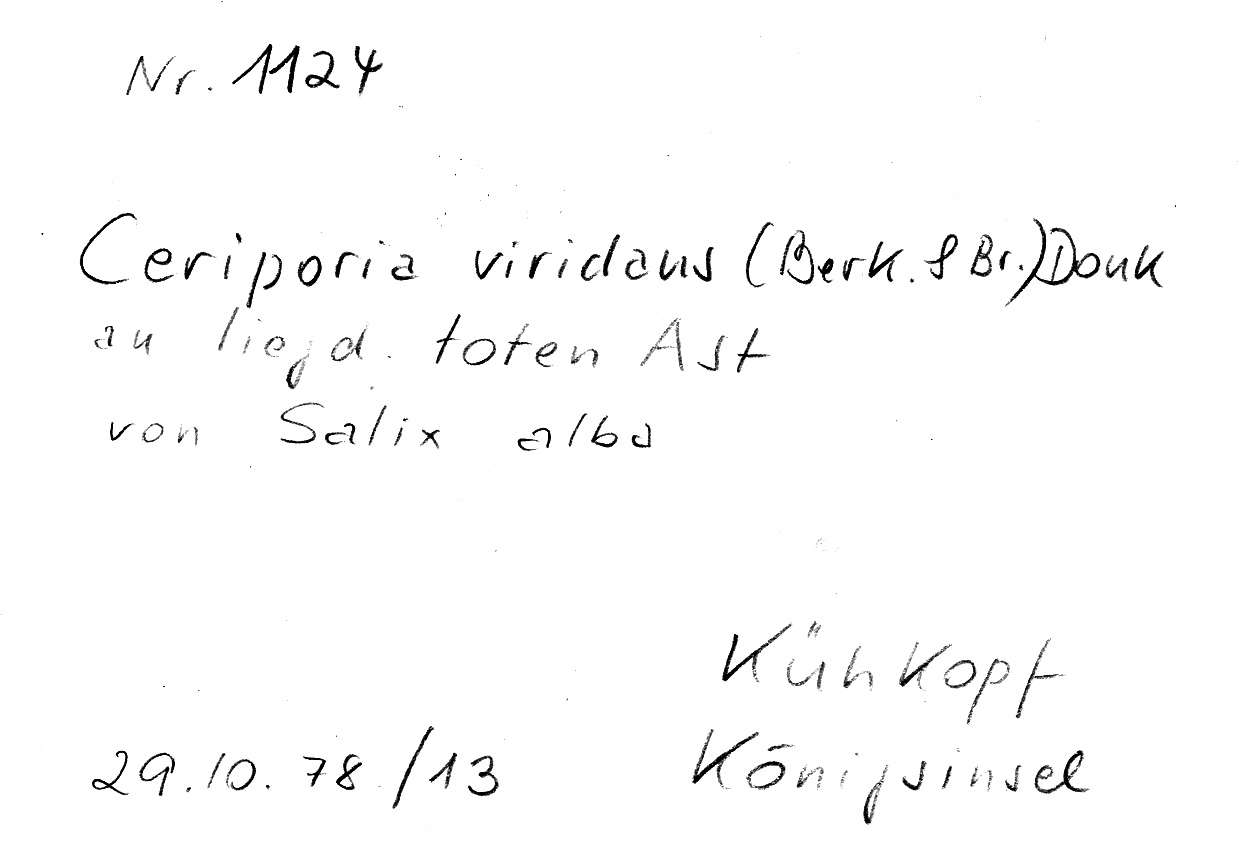 Nr. 1124
Ceriporia viridans (Berk. & Br.) Donk
an liegd. toten Ast
von Salix alba
Kühkopf
29.10.78/13 Königsinsel